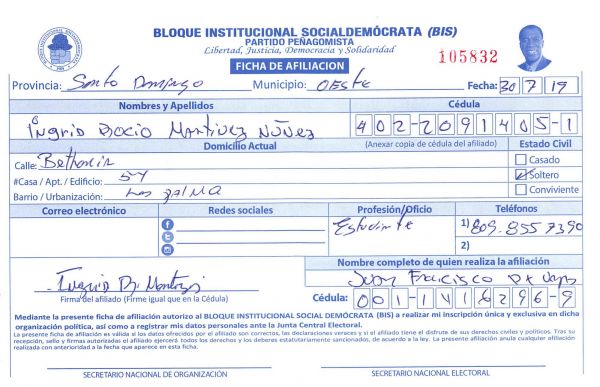 BLOQUE INSTITUCIONAL SOCIALDEMÓCRATA (BIS)
PARTIDO PEÑAGOMISTA
Libertad, Justicia, Democracia y Solidaridad
FICHA DE AFILIACION
105832
Provincia: Santo Domingo Municipio: OESTE Fecha: 30/7/19
Nombres y Apellidos Cédula
Ingrid Rocio Martinez Núñez 402-2091405-1
Domicilio Actual (Anexar copia de cédula del afiliado) Estado Civil
Calle: Bethania Casado
#Casa / Apt. / Edificio: 54 Soltero
Barrio / Urbanización: Las Palma Conviviente
Correo electrónico Redes sociales Profesión/Oficio Teléfonos
Estudiante 1) 809.855 7390
2)
Nombre completo de quien realiza la afiliación
Ingrid R. Juan Francisco
Firma del afiliado (Firme igual que en la Cédula) Cédula: 001-1416296-9
Mediante la presente ficha de afiliación autorizo al BLOQUE INSTITUCIONAL SOCIAL DEMÓCRATA (BIS) a realizar mi inscripción única y exclusiva en dicha
organización política, así como a registrar mis datos personales ante la Junta Central Electoral.
La presente ficha de afiliación es válida si los datos ofrecidos por el afiliado son correctos, las declaraciones veraces y si el afiliado tiene el disfrute de sus derechos civiles y políticos. Tras su
recepción, sello y firmas autorizadas el afiliado ejercerá todos los derechos y los deberes estatutariamente sancionados, de acuerdo a la ley. La presente afiliación anula cualquier afiliación
realizada con anterioridad a la fecha que aparece en esta ficha.
SECRETARIO NACIONAL DE ORGANIZACIÓN SECRETARIO NACIONAL ELECTORAL